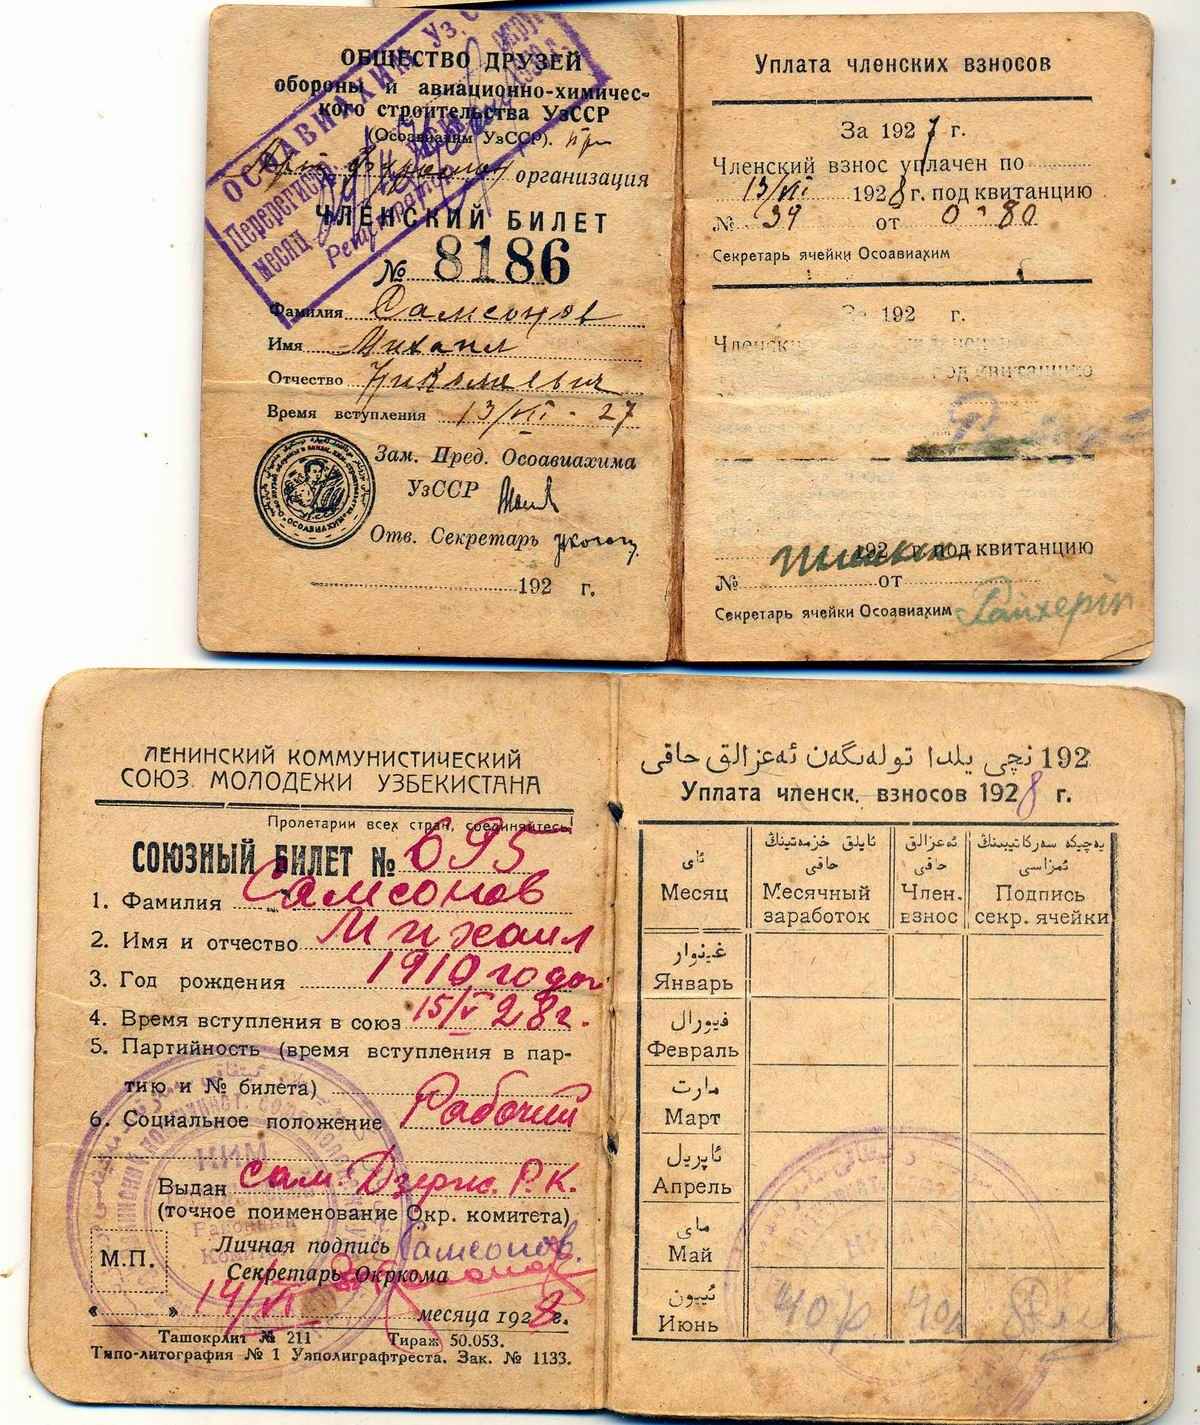 ОБЩЕСТВО ДРУЗЕЙ
обороны и авиационно-химичес-
кого строительства УзССР
(Осоавиахим УзССР).
организация
ЧЛЕНСКИЙ БИЛЕТ
№ 8186
Фамилия Самсонов
Имя Михаил
Отчество Николаевич
Время вступления 13/VII - 27
Зам. Пред. Осоавиахима
УзССР
Отв. Секретарь
192 г.
ОСОАВИАХИМ Уз.С
Перерегистр
месяц
Регистратор
"ОСОАВИАХИМ"
Уплата членских взносов
За 1927 г.
Членский взнос уплачен по
13/VII 1928 г. под квитанцию
№ 39 от 0-80
Секретарь ячейки Осоавиахим
За 192 г.
Членский
под квитанцию
192 г. под квитанцию
№ от
Секретарь ячейки Осоавиахим
ЛЕНИНСКИЙ КОММУНИСТИЧЕСКИЙ
СОЮЗ МОЛОДЕЖИ УЗБЕКИСТАНА
Пролетарии всех стран, соединяйтесь!
СОЮЗНЫЙ БИЛЕТ № 695
1. Фамилия Самсонов
2. Имя и отчество Михаил
3. Год рождения 1910 года
4. Время вступления в союз 15/V 28 г.
5. Партийность (время вступления в пар-
тию и № билета)
6. Социальное положение Рабочий
Выдан Сам. Дзерж. Р.К.
(точное поименование Окр. комитета)
Личная подпись Самсонов.
М.П.
Секретарь Окркома
« 14/VI » месяца 1928 г.
Ташокрлит № 211 Тираж 50.053.
Типо-литография № 1 Узполиграфтреста. Зак. № 1133.
192 نچى يىلدا تولەنگەن ئەعزالق حاقى
Уплата членск. взносов 1928 г.
ئاى
Месяц
ئايلق خزمەتىنڭ حاقى
Месячный заработок
ئەعزالق حاقى
Член. взнос
يەچيكە سەركاتيبىنڭ ئمزاسى
Подпись секр. ячейки
غينوار
Январь
فيورال
Февраль
مارت
Март
ئاپريل
Апрель
ماى
Май
ئييون
Июнь 40 р 40к